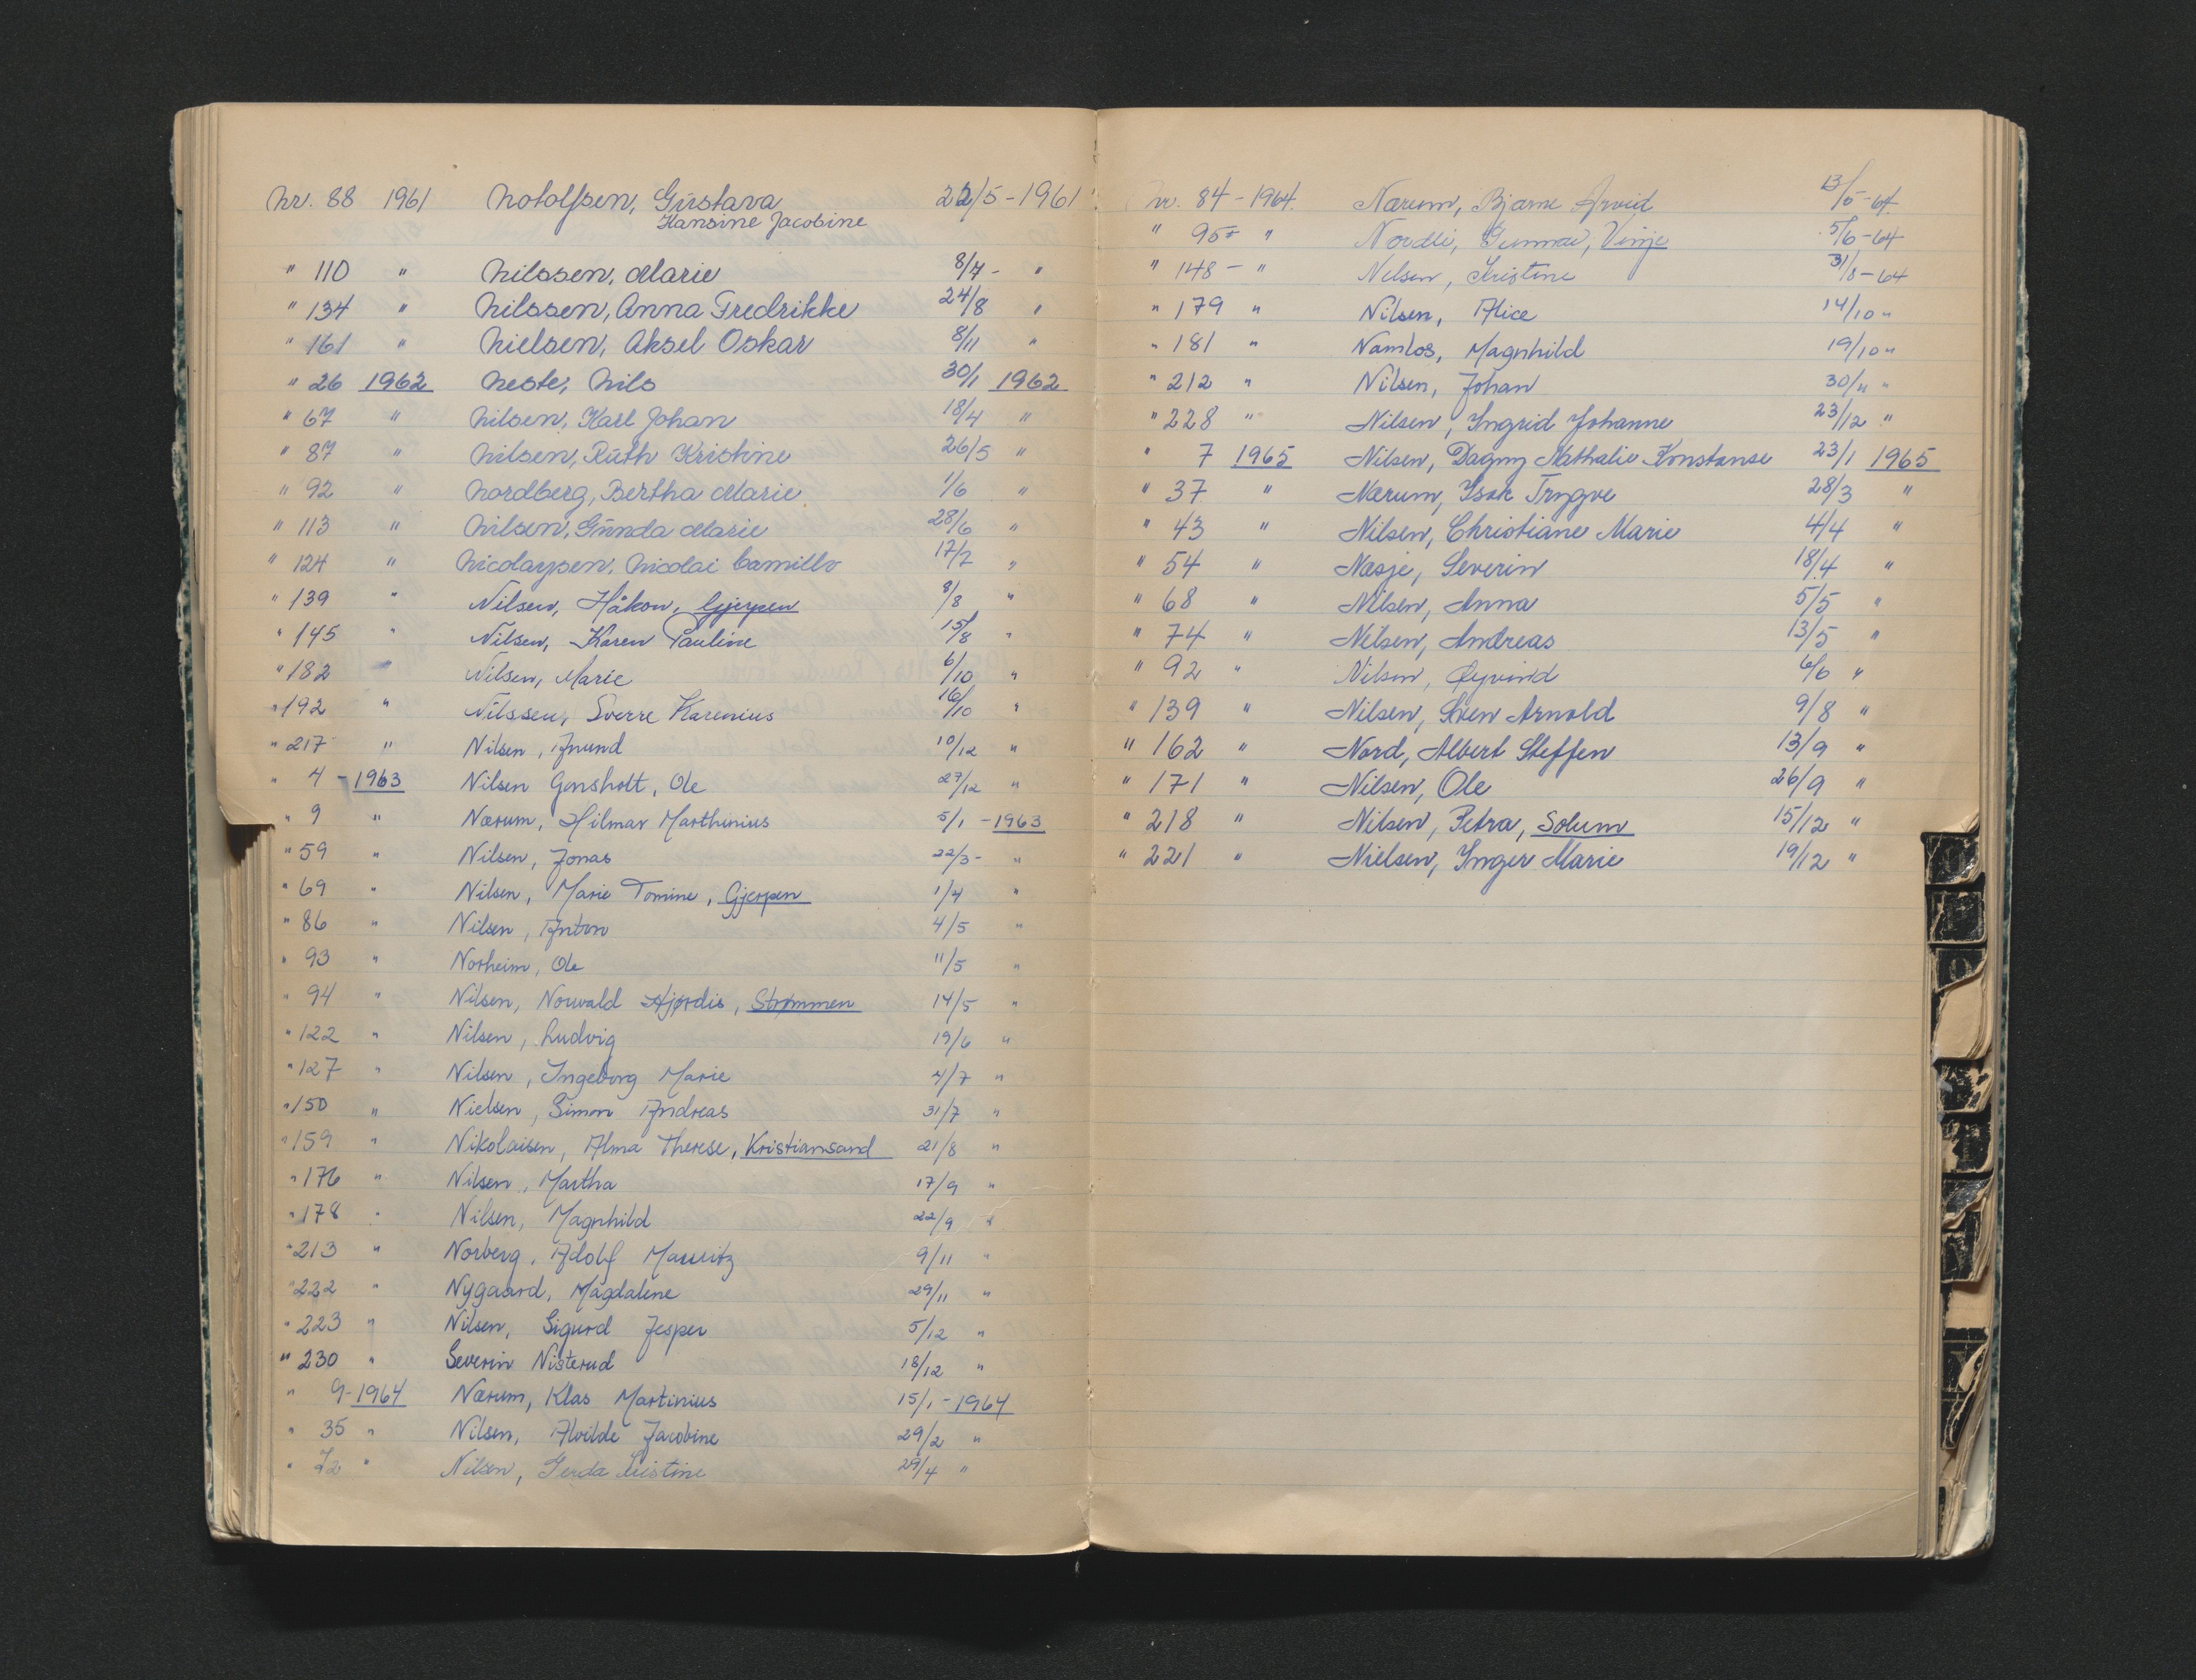 Nr. 88 1961 Notolfsen, Gustava 22/5 - 1961
Hansine Jacobine
" 110 " Nilssen, Marie 8/7 - "
" 134 " Nilssen, Anna Fredrikke 24/8 "
" 161 " Nielsen, Aksel Oskar 8/11 "
" 26 1962 Neste, Nils 30/1 1962
" 67 " Nilsen, Karl Johan 18/4 "
" 87 " Nilsen, Ruth Kristine 26/5 "
" 92 " Nordberg, Bertha Marie 1/6 "
" 113 " Nilsen, Gunda Marie 28/6 "
" 124 " Nicolaysen, Nicolai Camillo 17/7 "
" 139 " Nilsen, Håkon, Gjerpen 8/8 "
" 145 " Nilsen, Karen Pauline 15/8 "
" 182 " Nilsen, Marie 6/10 "
" 192 " Nilssen, Sverre Karenius 16/10 "
" 217 " Nilsen, Anund 10/12 "
" 4 - 1963 Nilsen Gonsholt, Ole 27/12 "
" 9 " Nærum, Hilmar Marthinius 5/1 - 1963
" 59 " Nilsen, Jonas 22/3 - "
" 69 " Nilsen, Marie Tomine, Gjerpen 1/4 "
" 86 " Nilsen, Anton 4/5 "
" 93 " Norheim, Ole 11/5 "
" 94 " Nilsen, Norwald Hjørdis, Strømmen 14/5 "
" 122 " Nilsen, Ludvig 19/6 "
" 127 " Nilsen, Ingeborg Marie 4/7 "
" 150 " Nielsen, Simon Andreas 31/7 "
" 159 " Nikolaisen, Alma Therese, Kristiansand 21/8 "
" 176 " Nilsen, Martha 17/9 "
" 178 " Nilsen, Magnhild 22/9 "
" 213 " Norberg, Adolf Mauritz 9/11 "
" 222 " Nygaard, Magdalene 29/11 "
" 223 " Nilsen, Sigurd Jesper 5/12 "
" 230 " Severin Nisterud 18/12 "
" 9 - 1964 Nærum, Klas Martinius 15/1 - 1964
" 35 " Nilsen, Alvilde Jacobine 29/2 "
" 72 " Nilsen, Gerda Kristine 29/4 "
Nr. 84 - 1964. Nærum, Bjarne Arvid 13/5 - 64.
" 95 " Nordli, Gunnar, Vinje 5/6 - 64
" 148 - " Nilsen, Kristine 31/8 - 64
" 179 " Nilsen, Alice 14/10 "
" 181 " Namlos, Magnhild 19/10 "
" 212 " Nilsen, Johan 30/11 "
" 228 " Nilsen, Ingrid Johanne 23/12 "
" 7 1965 Nilsen, Dagny Nathalie Konstanse 23/1 1965
" 37 " Nærum, Isak Trygve 28/3 "
" 43 " Nilsen, Christiane Marie 4/4 "
" 54 " Næsje, Severin 18/4 "
" 68 " Nilsen, Anna 5/5 "
" 74 " Nilsen, Andreas 13/5 "
" 92 " Nilsen, Øyvind 6/6 "
" 139 " Nilsen, Sven Arnold 9/8 "
" 162 " Nord, Albert Steffen 13/9 "
" 171 " Nilsen, Ole 26/9 "
" 218 " Nilsen, Petra, Solum 15/12 "
" 221 " Nielsen, Inger Marie 19/12 "